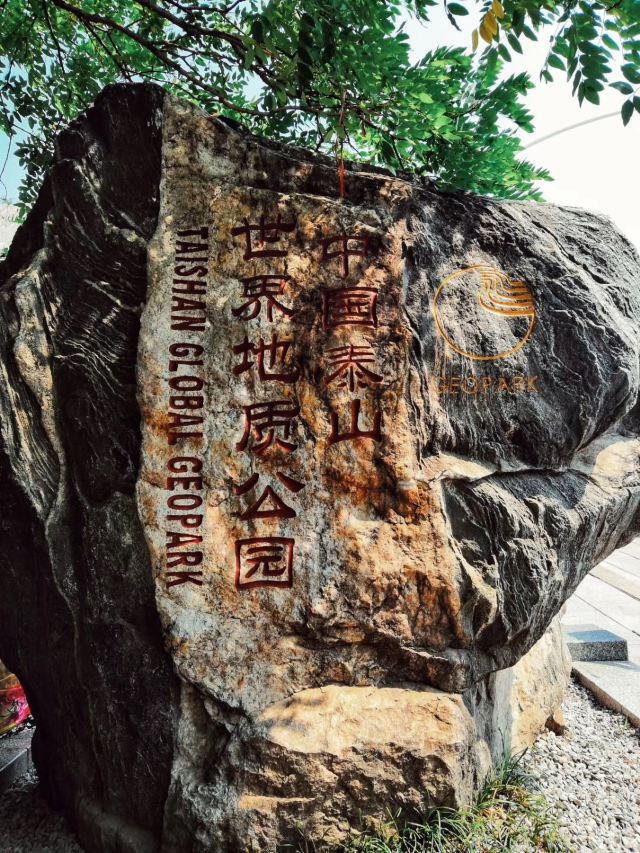 中国泰山
世界地质公园
TAISHAN GLOBAL GEOPARK
GEOPARK